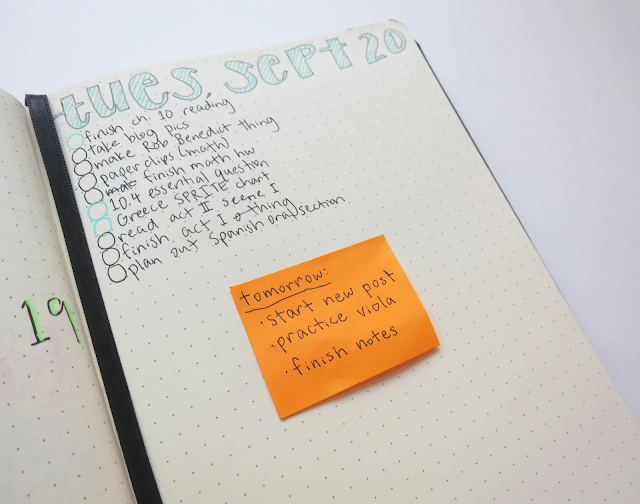 tues, sept 20
finish ch. 10 reading
take blog pics
make Rob Benedict thing
paper clips (math)
make finish math hw
10.4 essential question
Greece SPRITE chart
read act II scene I
finish act I thing
plan out Spanish oral section
19
tomorrow:
· start new post
· practice viola
· finish notes